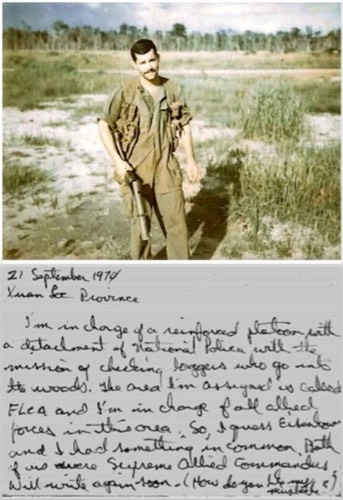 21 September 1970
Xuan Loc Province
I'm in charge of a reinforced platoon with
a detachment of National Police with the
mission of checking loggers who go into
the woods. The area I'm assigned is called
FLEA and I'm in charge of all allied
forces in this area. So, I guess Eisenhower
and I had something in common. Both
of us were Supreme Allied Commanders.
Will write again soon. (How do you like my